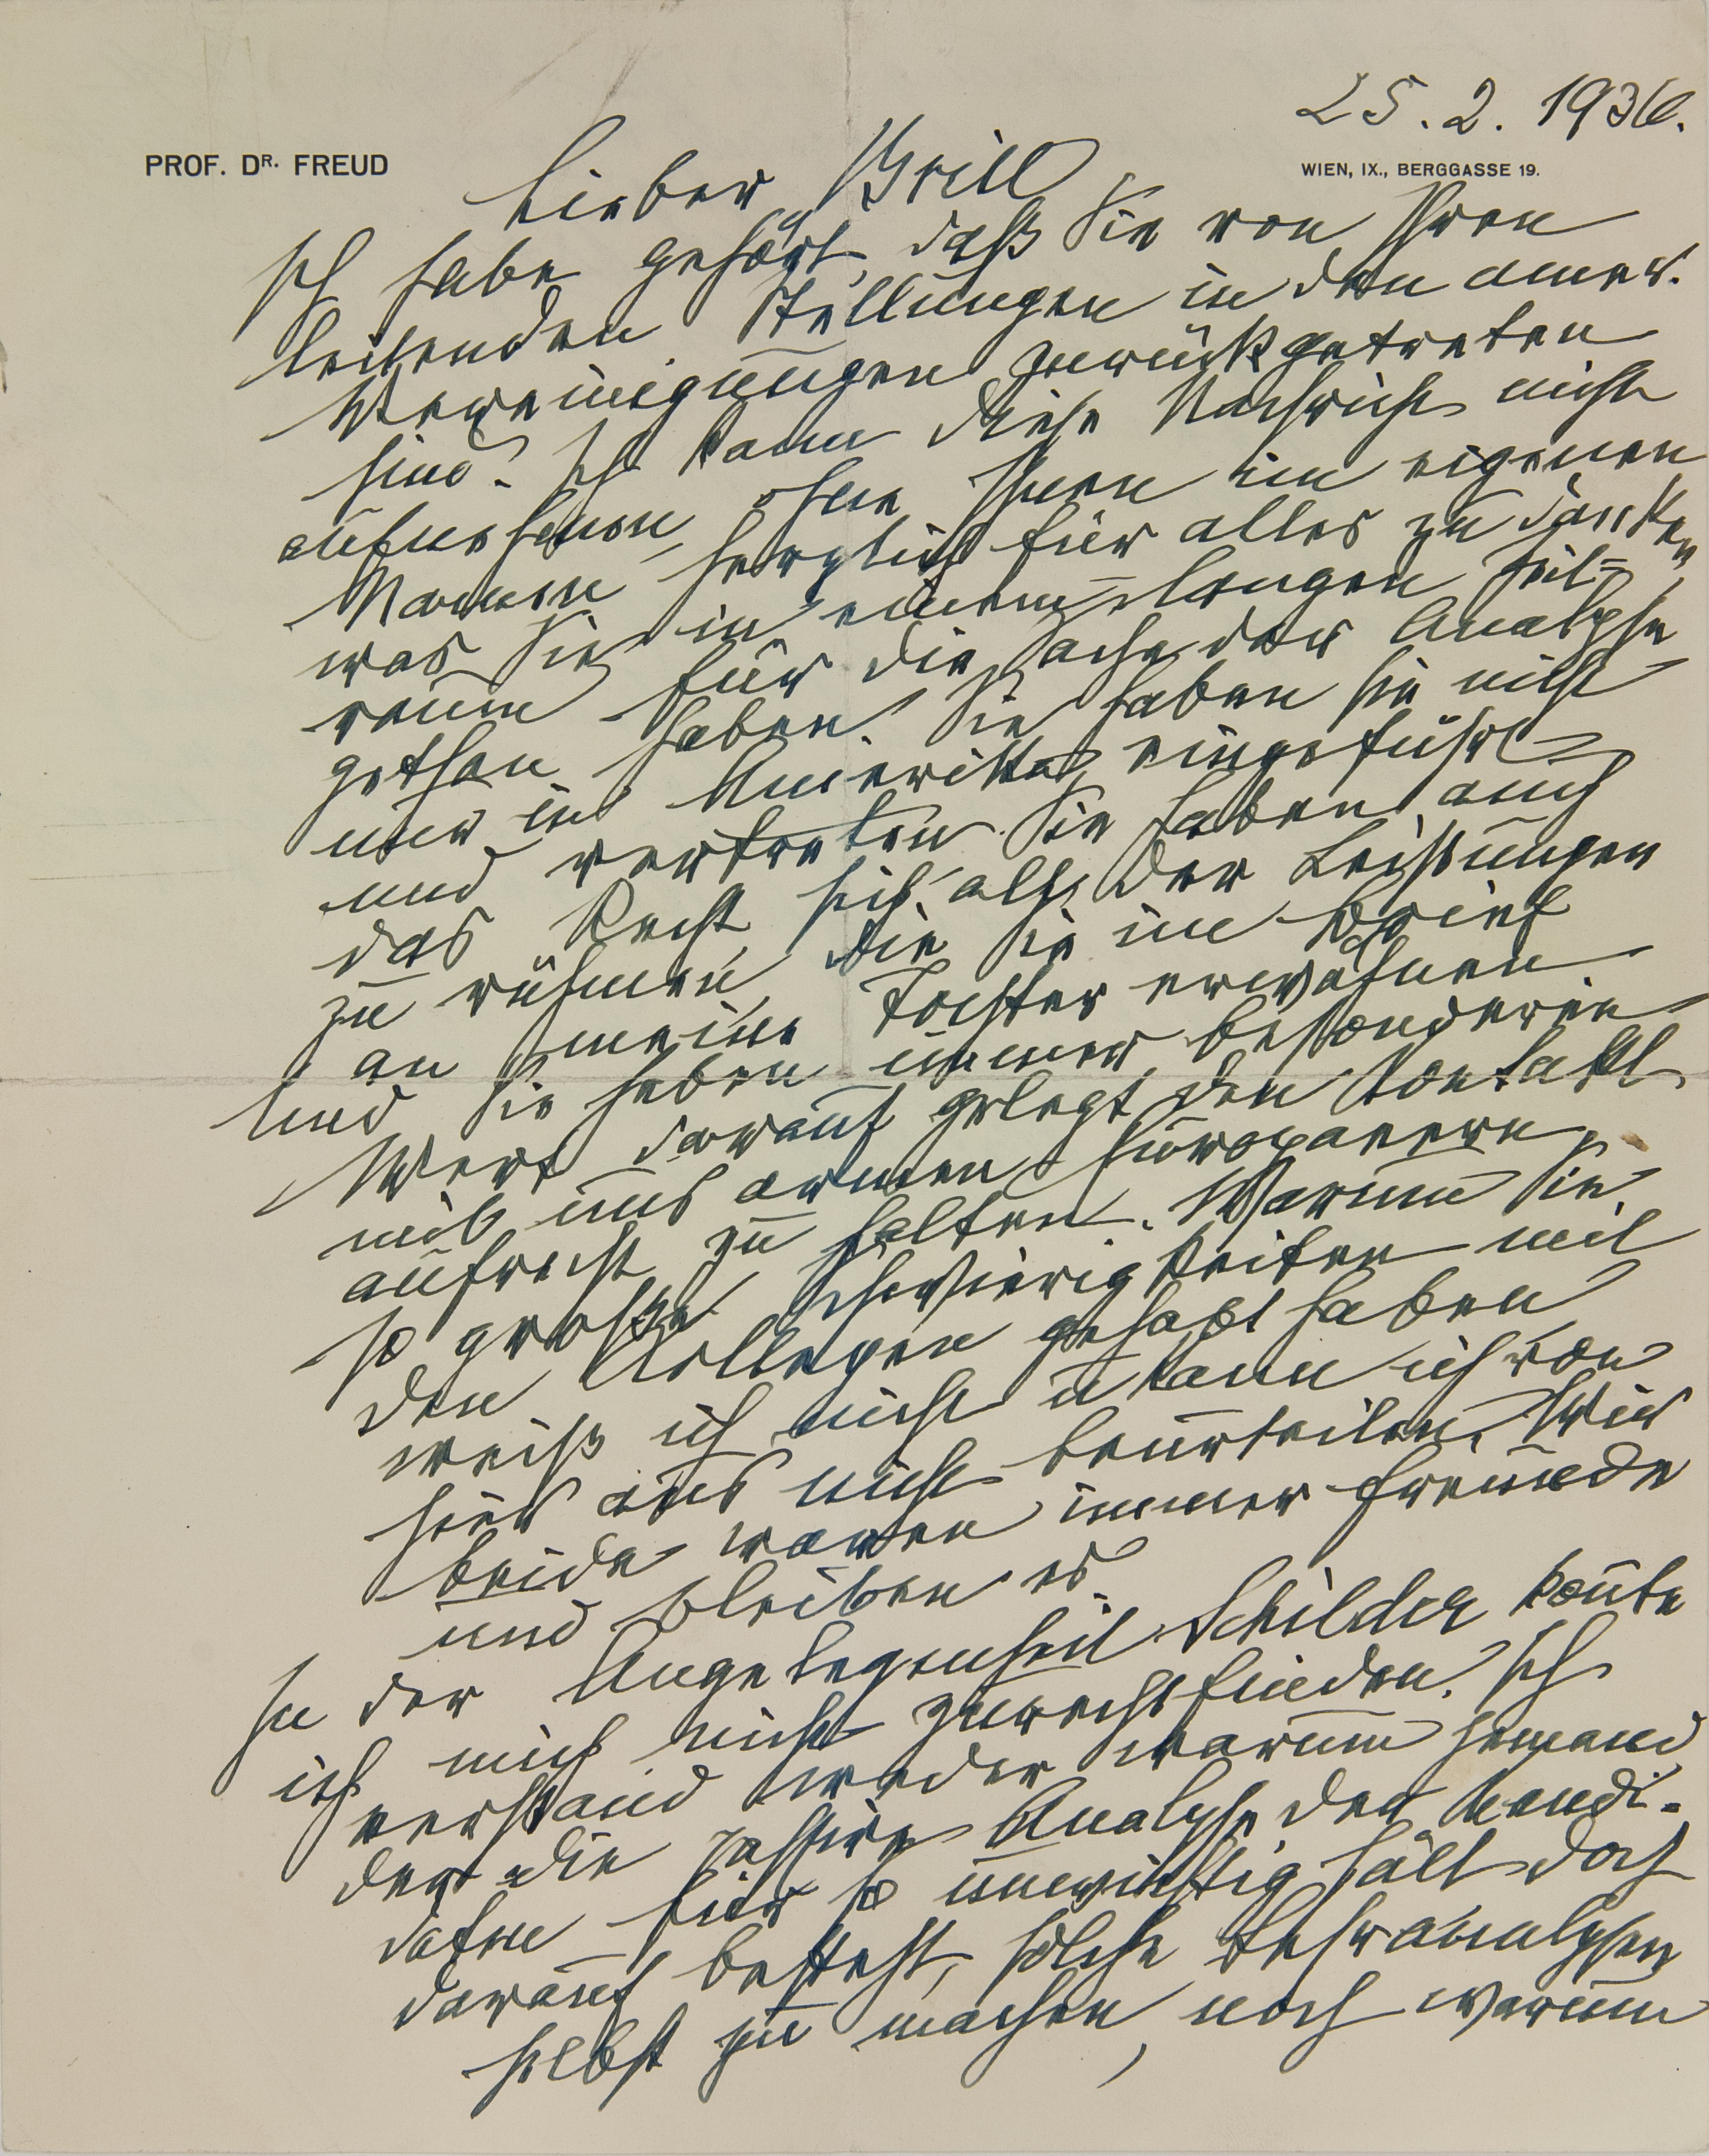 25.2.1936.
PROF. DR. FREUD
WIEN, IX., BERGGASSE 19.
Lieber Brill
Ich habe gehört, daß Sie von Ihren
leitenden Stellungen in den amer.
Vereinigungen zurückgetreten
sind. Ich kann diese Nachricht nicht
aufnehmen, ohne Ihnen im eigenen
Namen herzlich für alles zu danken,
was Sie in einem langen Zeit-
raum für die Sache der Analyse
gethan haben. Sie haben sie nicht
nur in Amerika eingeführt
und vertreten. Sie haben auch
das Recht sich all der Leistungen
zu rühmen, die Sie im Brief
an meine Tochter erwähnen.
Und Sie haben immer besonderen
Wert darauf gelegt den Kontakt
mit uns armen Europäern
aufrecht zu halten. Warum Sie
so große Schwierigkeiten mit
den Kollegen gehabt haben
weiß ich nicht u kann ich von
hier aus nicht beurteilen. Wir
beide waren immer Freunde
und bleiben es.
In der Angelegenheit Schilder konnte
ich mich nicht zurechtfinden. Ich
verstand weder warum jemand
der die passive Analyse des Kandi-
daten für so unwichtig hält doch
darauf besteht, solche Lehranalysen
selbst zu machen, noch warum